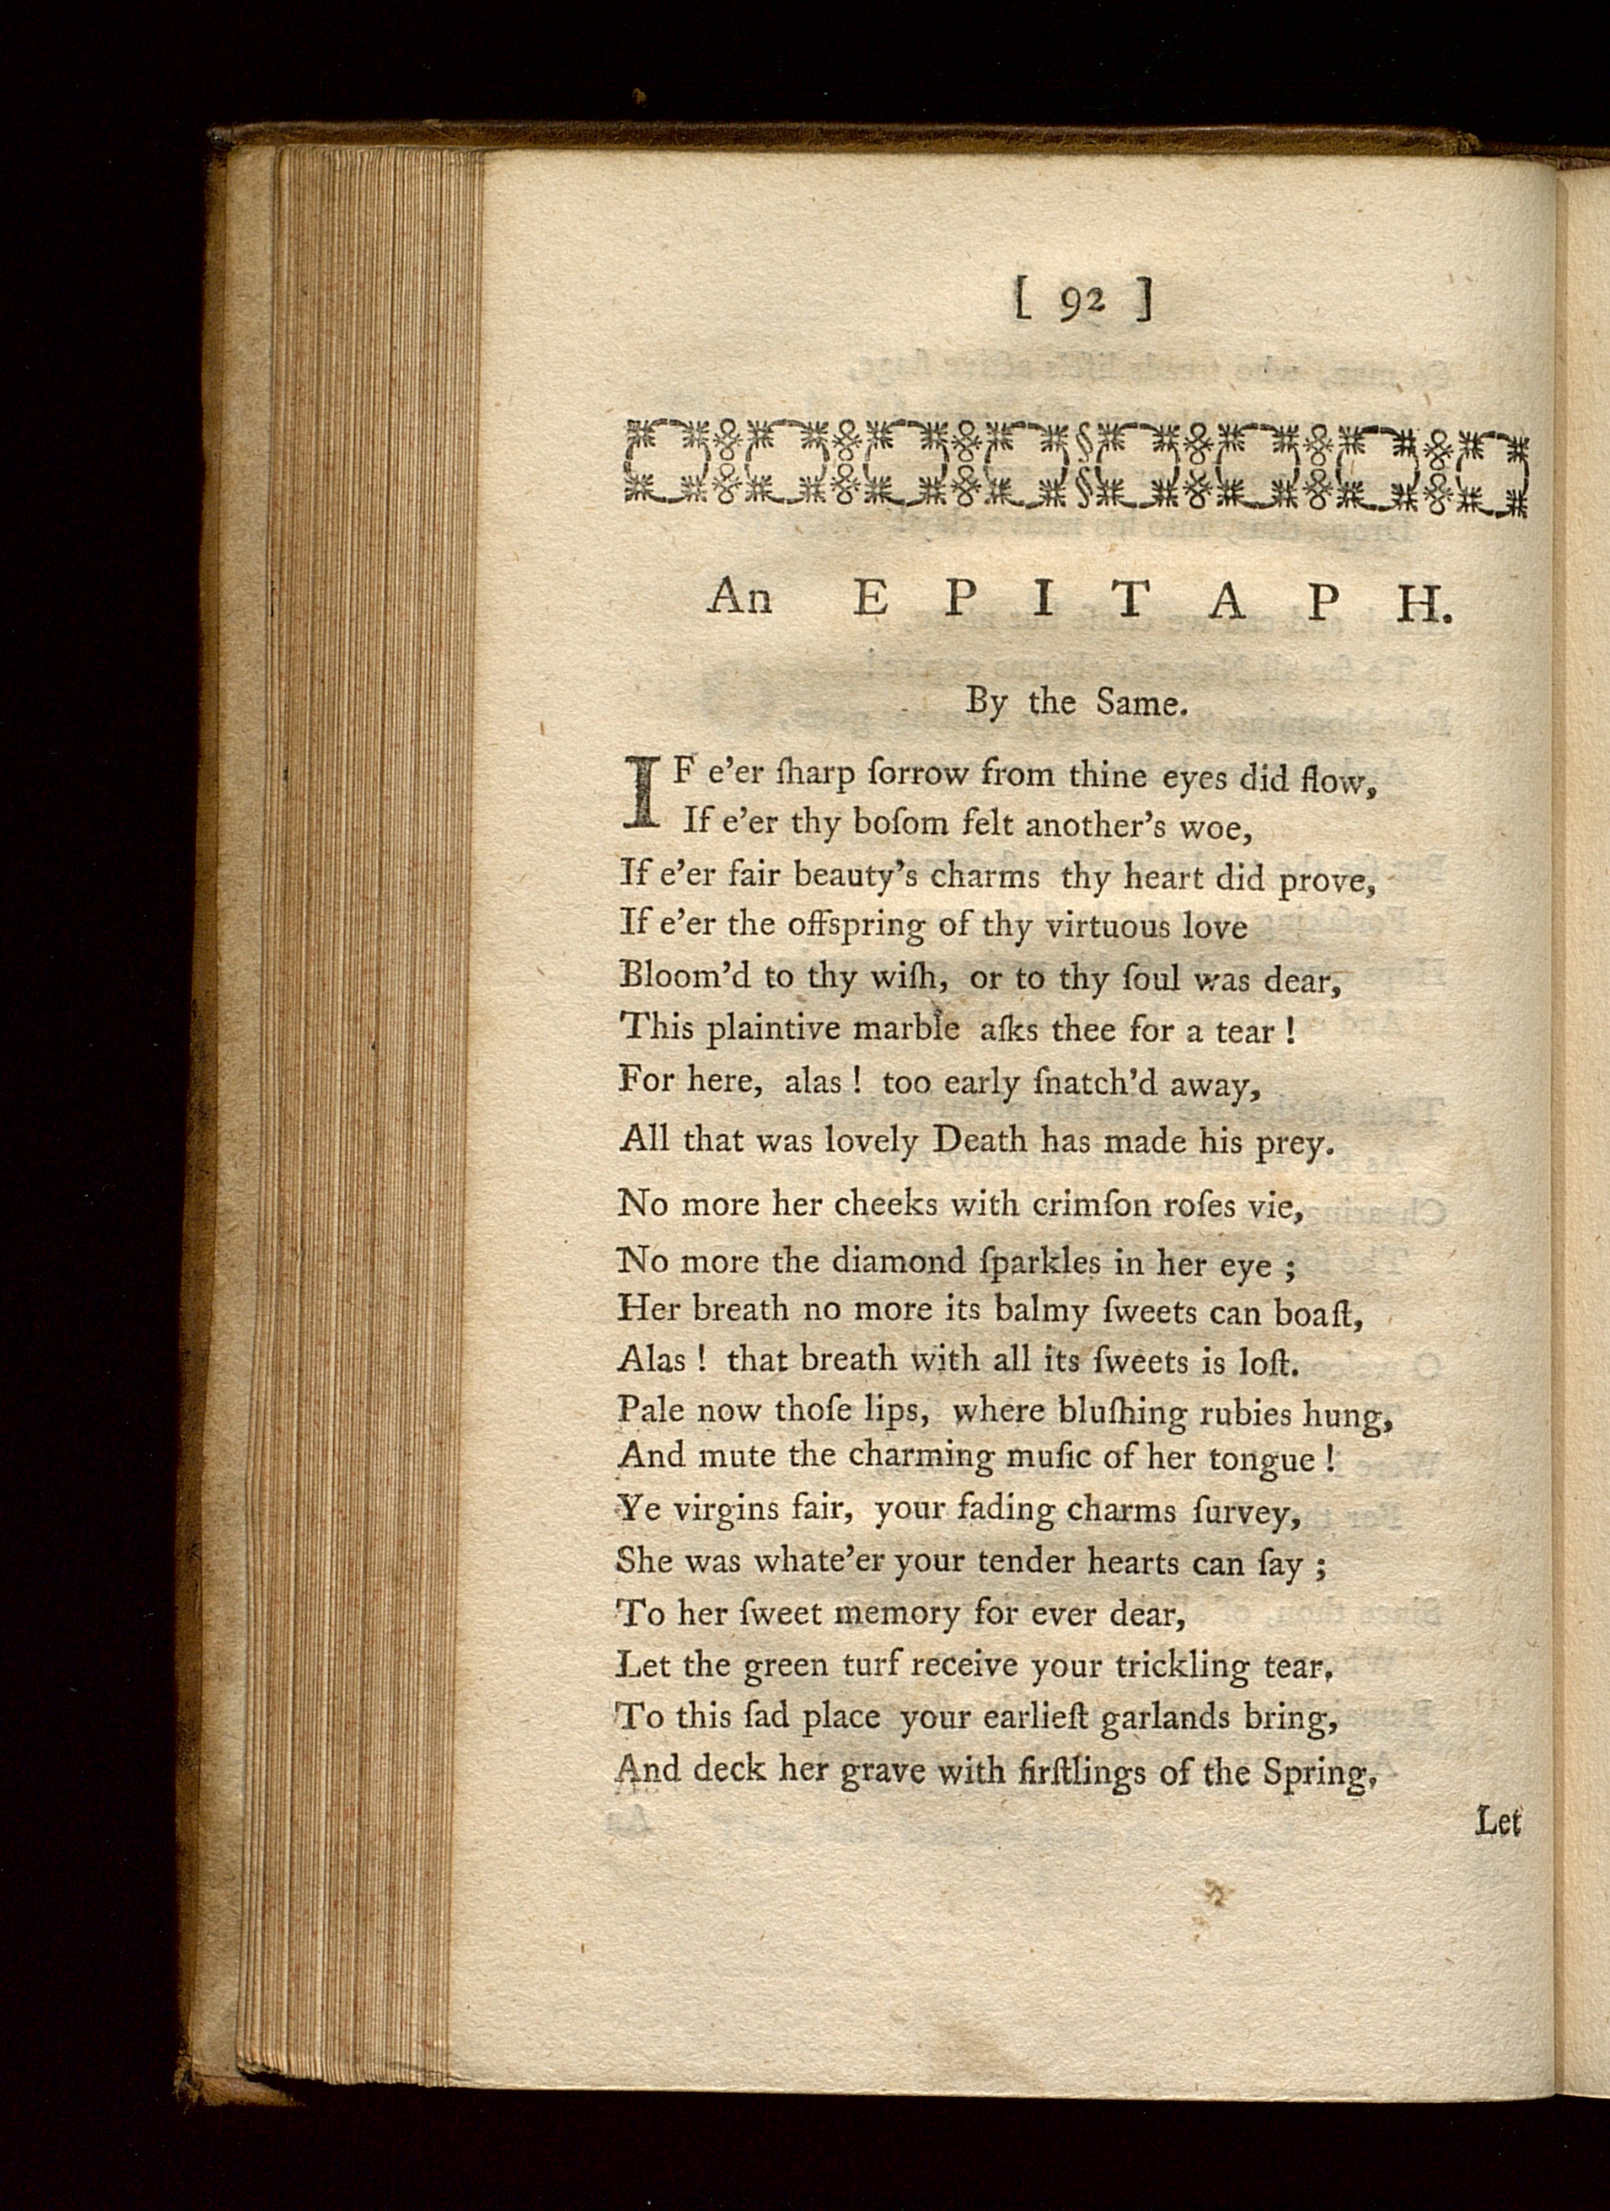 [ 92 ]
An EPITAPH.
By the Same.
IF e'er ſharp ſorrow from thine eyes did flow,
If e'er thy boſom felt another's woe,
If e'er fair beauty's charms thy heart did prove,
If e'er the offspring of thy virtuous love
Bloom'd to thy wiſh, or to thy ſoul was dear,
This plaintive marble aſks thee for a tear !
For here, alas ! too early ſnatch'd away,
All that was lovely Death has made his prey.
No more her cheeks with crimſon roſes vie,
No more the diamond ſparkles in her eye ;
Her breath no more its balmy ſweets can boaſt,
Alas ! that breath with all its ſweets is loſt.
Pale now thoſe lips, where bluſhing rubies hung,
And mute the charming muſic of her tongue !
Ye virgins fair, your fading charms ſurvey,
She was whate'er your tender hearts can ſay ;
To her ſweet memory for ever dear,
Let the green turf receive your trickling tear,
To this ſad place your earlieſt garlands bring,
And deck her grave with firſtlings of the Spring,
Let